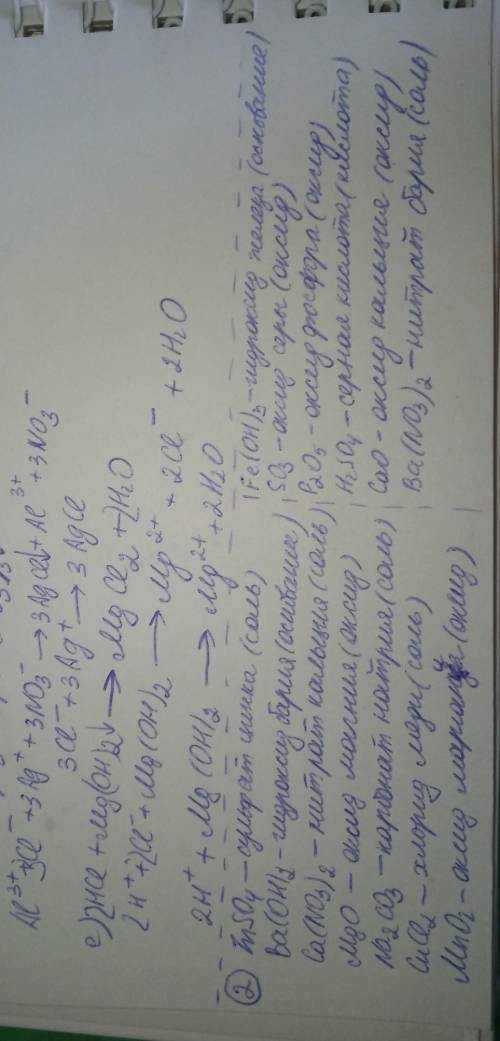 Al³⁺+3Cl⁻+3Ag⁺+3NO₃⁻→3AgCl↓+Al³⁺+3NO₃⁻
3Cl⁻+3Ag⁺→3AgCl
e) 2HCl+Mg(OH)₂↓→MgCl₂+2H₂O
2H⁺+2Cl⁻+Mg(OH)₂→Mg²⁺+2Cl⁻+2H₂O
2H⁺+Mg(OH)₂→Mg²⁺+2H₂O
② ZnSO₄ – сульфат цинка (соль)
Ba(OH)₂ – гидроксид бария (основание)
Ca(NO₃)₂ – нитрат кальция (соль)
MgO – оксид магния (оксид)
Na₂CO₃ – карбонат натрия (соль)
CuCl₂ – хлорид меди (соль)
MnO₂ – оксид марганца (оксид)
Fe(OH)₃ – гидроксид железа (основание)
SO₃ – оксид серы (оксид)
P₂O₅ – оксид фосфора (оксид)
H₂SO₄ – серная кислота (кислота)
CaO – оксид кальция (оксид)
Ba(NO₃)₂ – нитрат бария (соль)